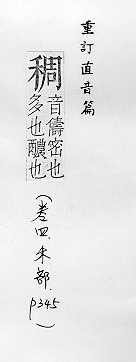 重訂直音篇
稠
音儔密也
多也醲也
(卷四,禾部,p345)